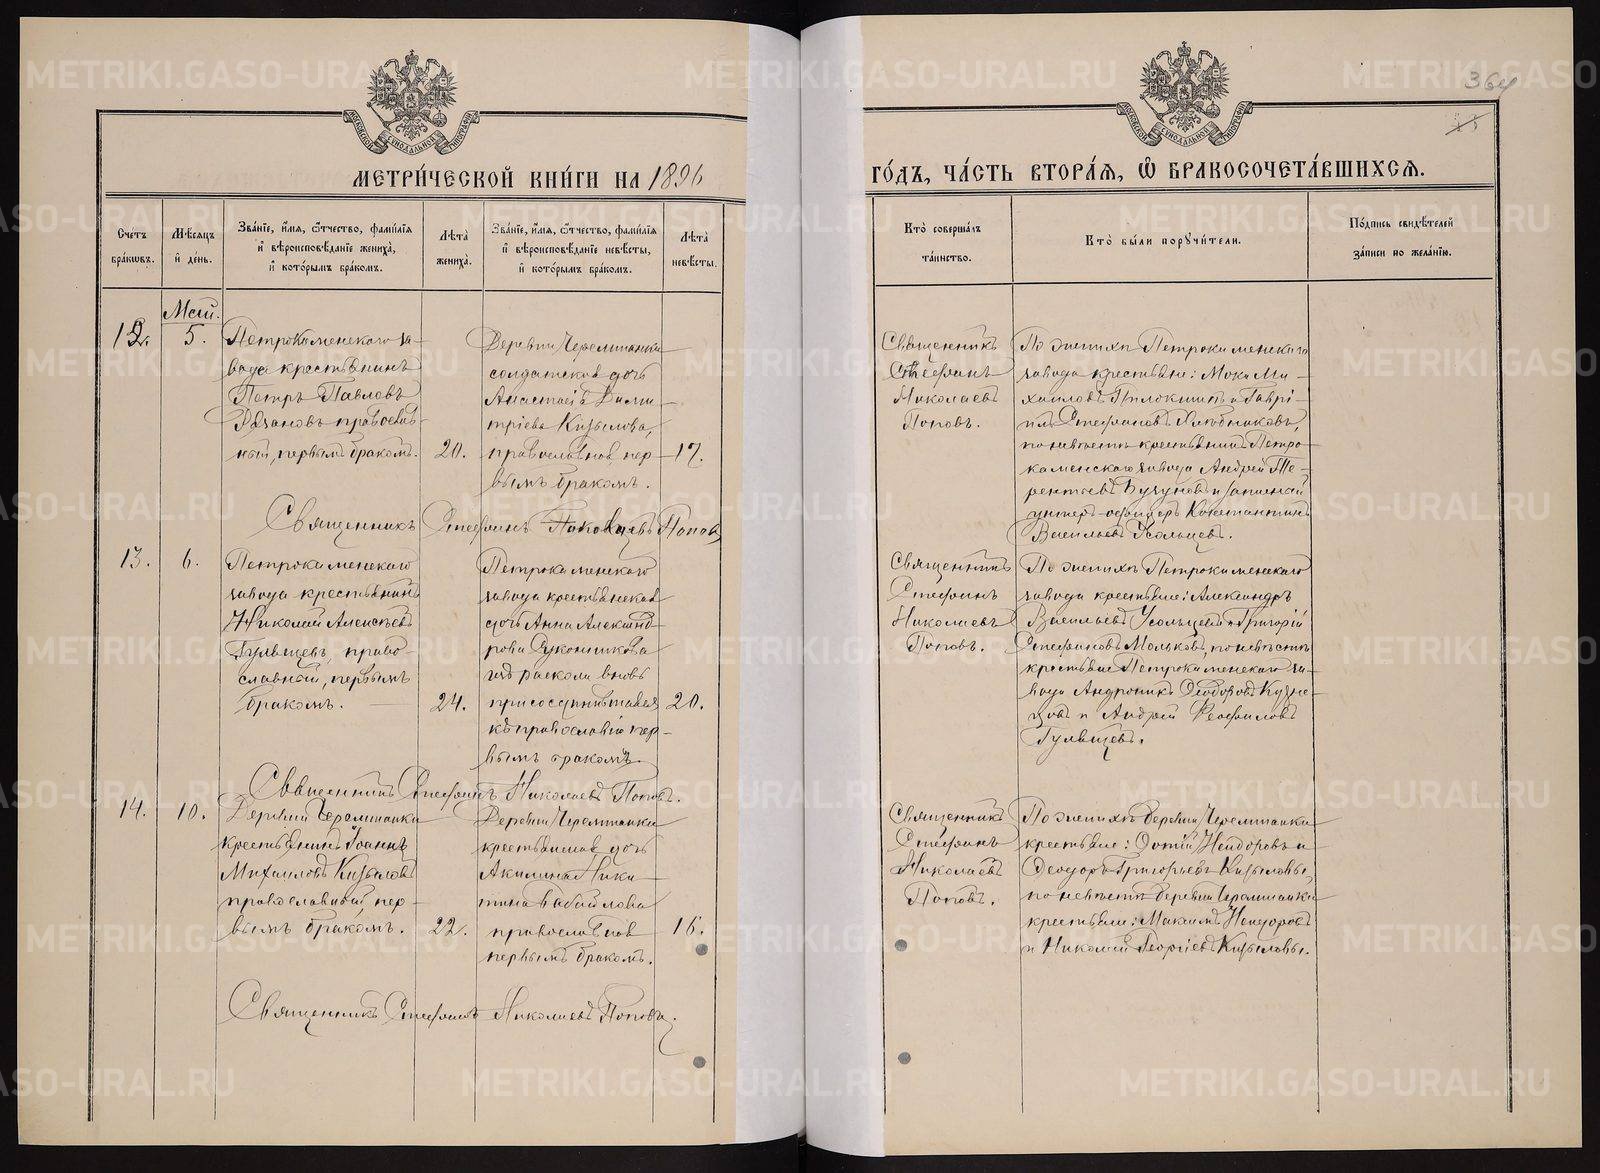 364
МЕТРИ́ЧЕСКОЙ КНИ́ГИ НА 1896
ГО́ДЪ, ЧА́СТЬ ВТОРА́Я, Ѡ БРАКОСОЧЕТА́ВШИХСЯ.
Сче́тъ бра́кѡвъ.
Мѣ́сяцъ и҆ де́нь.
Зва́нїе, и҆́мя, ѻ҆́тчество, фами́лїя
и҆ вѣроисповѣ́данїе жениха̀,
и҆ кото́рымъ бра́комъ.
Лѣ́та жениха̀.
Зва́нїе, и҆́мя, ѻ҆́тчество, фами́лїя
и҆ вѣроисповѣ́данїе невѣ́сты,
и҆ кото́рымъ бра́комъ.
Лѣ́та невѣ́сты.
Кто̀ соверша́лъ
та́инство.
Кто̀ бы́ли порꙋчи́тели.
По́дпись свидѣ́телей
за́писи по жела́нїю.
Май.
12.
5.
Петрокаменскаго за-
вода крестьянинъ
Петръ Павловъ
православ-
ный, первымъ бракомъ.
20.
Деревни Черемшанки
солдатская дочь
Анастасія Дими-
тріева Кизылова,
православная, пер-
вымъ бракомъ.
17.
Священникъ
Стефанъ
Николаевъ
Поповъ.
По женихѣ Петрокаменскаго
завода крестьяне: Мока Ми-
хаиловъ и Гаврі-
илъ Стефановъ
по невѣстѣ крестьянинъ Петро-
каменскаго завода Андрей Те-
рентьевъ и запасный
унтер-офицеръ Константинъ
Васильевъ Усольцевъ.
Священникъ Стефанъ Николаевъ Поповъ
13.
6.
Петрокаменскаго
завода крестьянинъ
Николай Алексѣевъ
Гулящевъ, право-
славный, первымъ
бракомъ.
24.
Петрокаменскаго
завода крестьянская
дочь Анна Александ-
рова
изъ раскола вновь
присоединившаяся
къ православію пер-
вымъ бракомъ.
20.
Священникъ
Стефанъ
Николаевъ
Поповъ.
По женихѣ Петрокаменскаго
завода крестьяне: Александръ
Васильевъ Усольцевъ и Григорій
Стефановъ Мальковъ, по невѣстѣ
крестьяне Петрокаменскаго за-
вода Андроникъ Ѳеодоровъ Кузне-
цовъ и Андрей Ѳеофиловъ
Гулящевъ.
Священникъ Стефанъ Николаевъ Поповъ.
14.
10.
Деревни Черемшанки
крестьянинъ Іоаннъ
Михаиловъ Кизыловъ
православный, пер-
вымъ бракомъ.
22.
Деревни Черемшанки
крестьянская дочь
Акилина Ники-
тина
православная
первымъ бракомъ.
16.
Священникъ
Стефанъ
Николаевъ
Поповъ.
По женихѣ деревни Черемшанки
крестьяне: Фотій и
Ѳеодоръ Григорьевъ Кизыловы,
по невѣстѣ деревни Черемшанки
крестьяне: Максимъ
и Николай Георгіевъ Кизыловы.
Священникъ Стефанъ Николаевъ Поповъ.
METRIKI.GASO-URAL.RU